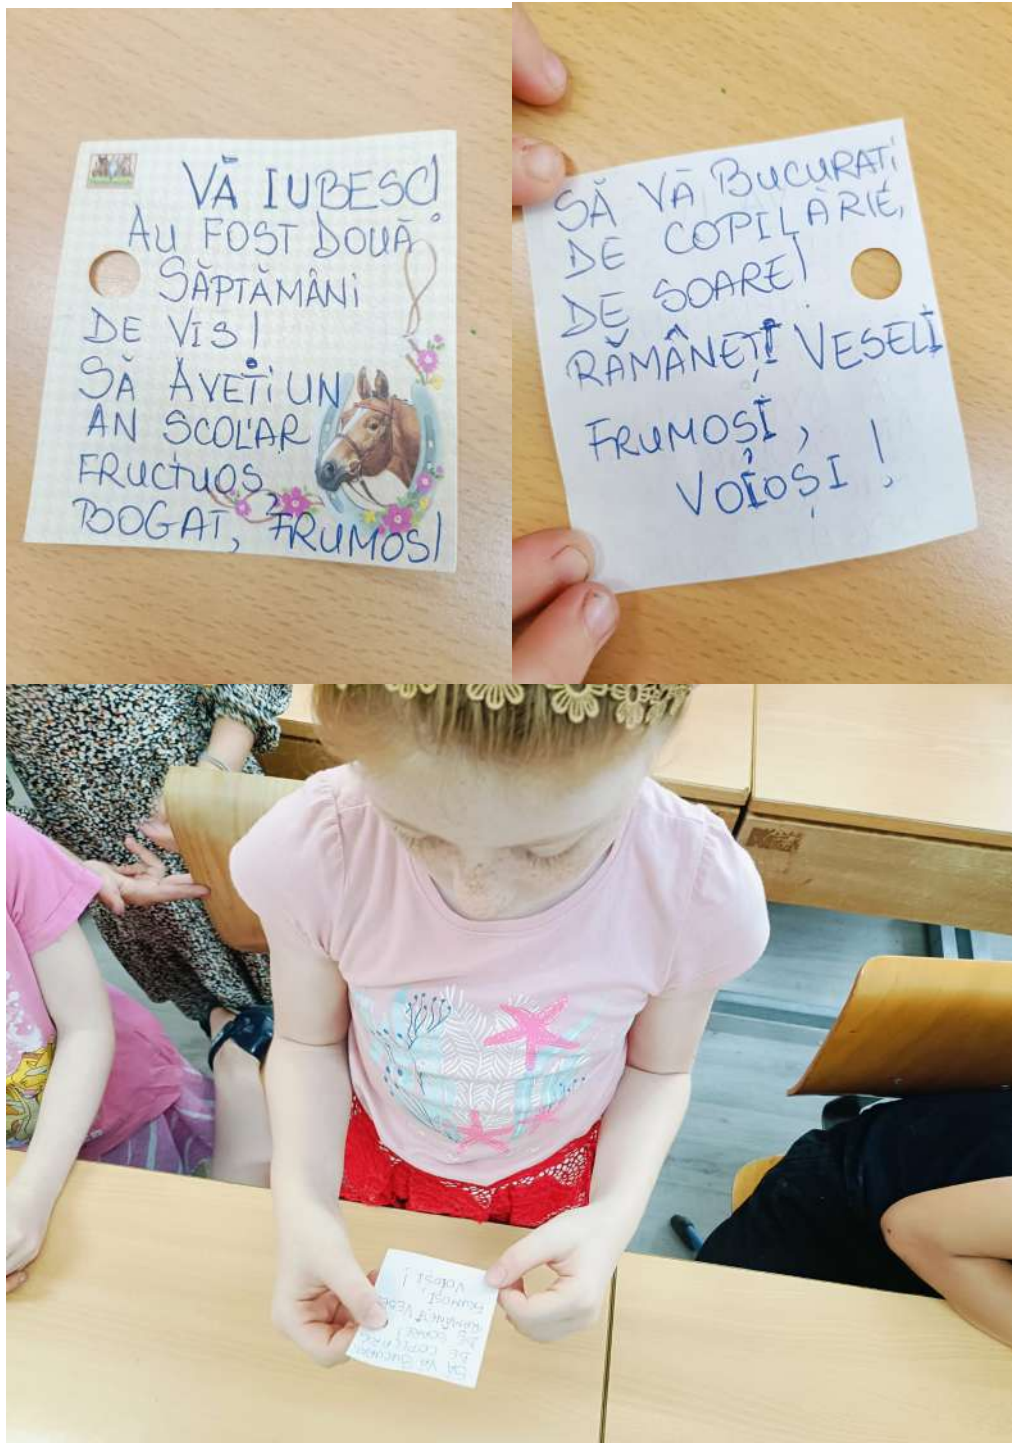 VĂ IUBESC!
AU FOST DOUĂ
SĂPTĂMÂNI
DE VIS!
SĂ AVEȚI UN
AN SCOLAR
FRUCTUOS,
BOGAT, FRUMOS!
SĂ VĂ BUCURAȚI
DE COPILĂRIE,
DE SOARE!
RĂMÂNEȚI VESELI
FRUMOȘI,
VOIOȘI!
SĂ VĂ BUCURAȚI
DE COPILĂRIE
DE SOARE!
RĂMÂNEȚI VESELI
FRUMOȘI,
VOIOȘI!